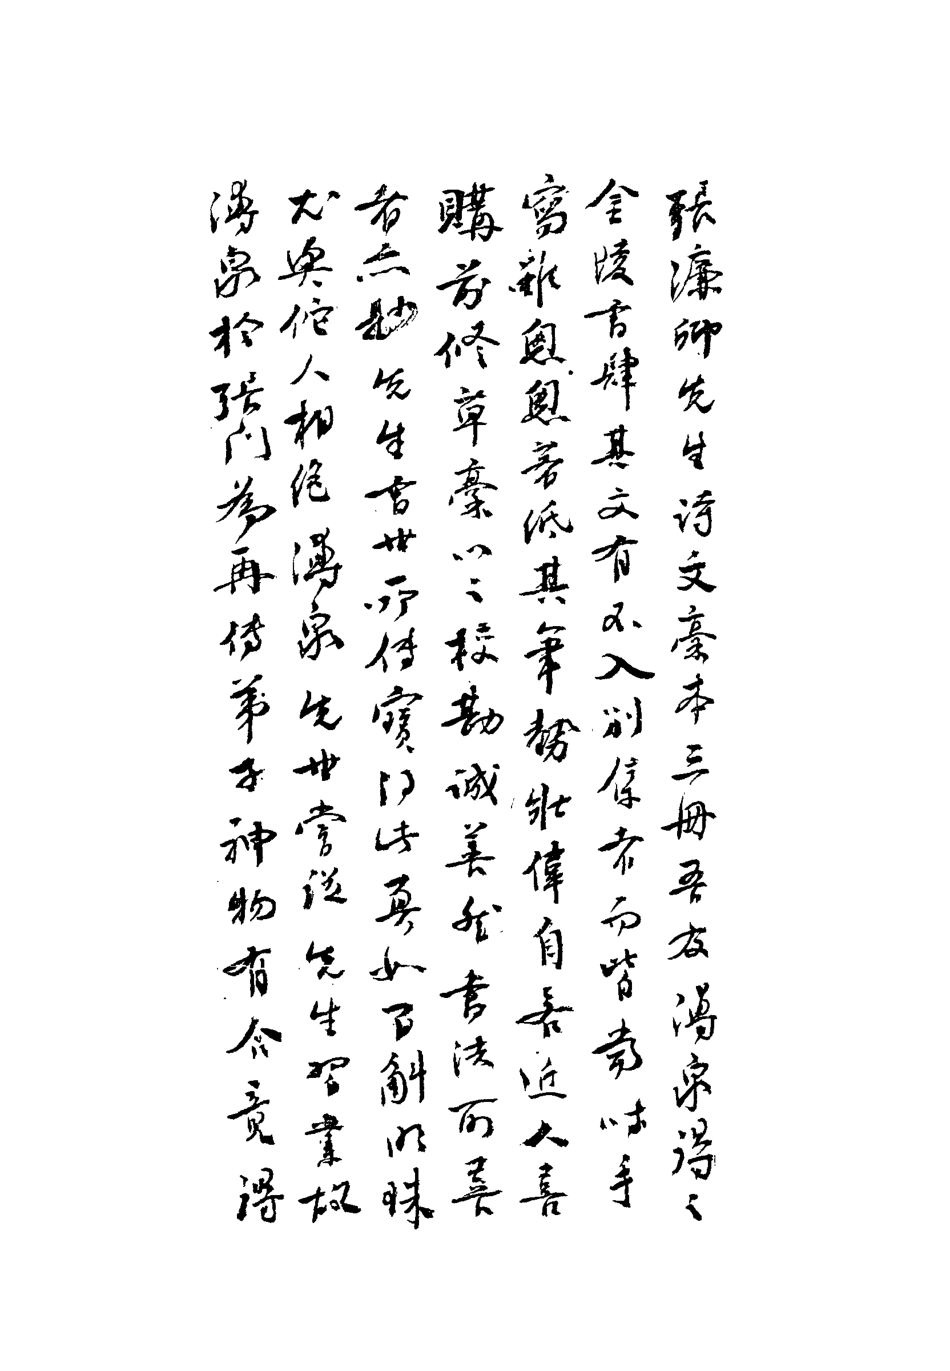 張濂卿先生詩文稾本三冊吾友溥泉得之
金陵書肆其文有不入別集者而皆當時手
寫雖恩恩著紙其筆勢壯偉自若近人喜
購前修草稾以之校勘誠善然書法可冀
者亦尟先生書世所傳寶得此真如百斛明珠
尤與他人相絕溥泉先世嘗從先生習業故
溥泉於張門為再傳弟子神物有合竟得